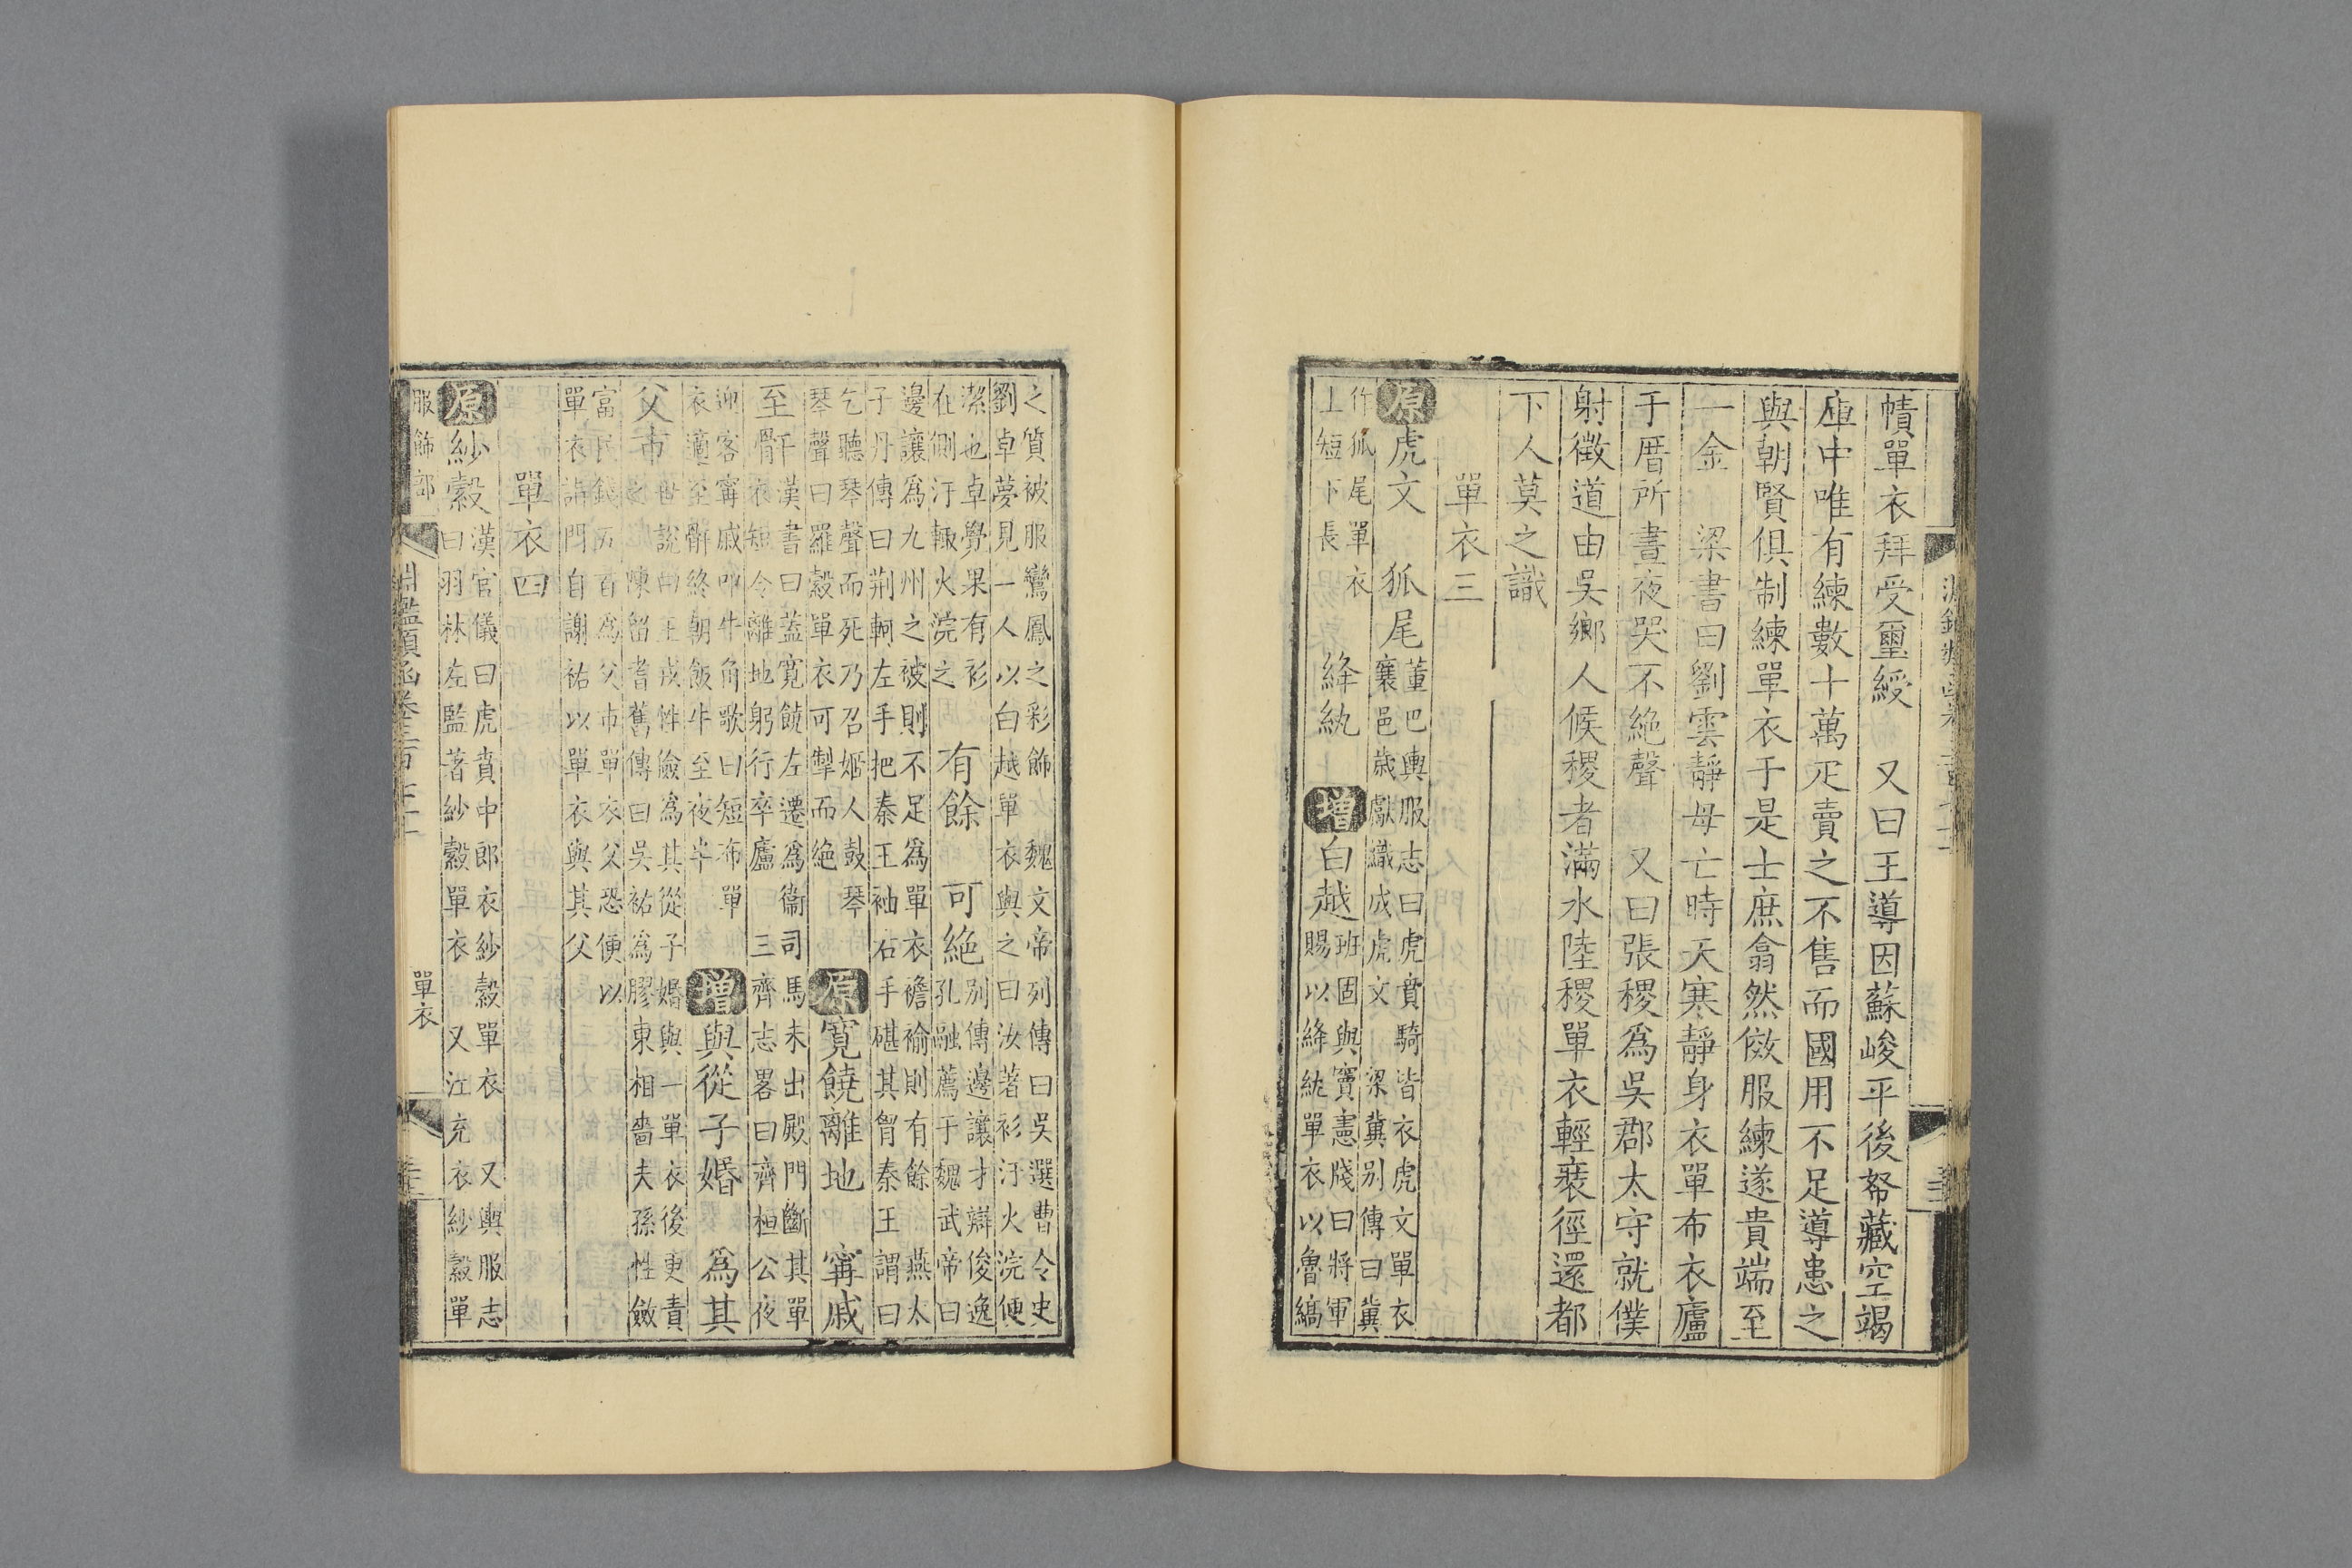 幘單衣拜受璽綬　又曰王導因蘇峻平後帑藏空竭
庫中唯有練數十萬疋賣之不售而國用不足導患之
與朝賢俱制練單衣于是士庶翕然傚服練遂貴端至
一金　梁書曰劉雲靜母亡時天寒靜身衣單布衣廬
于厝所晝夜哭不絶聲　又曰張稷爲吳郡太守就僕
射徵道由吳鄉人候稷者滿水陸稷單衣輕裝徑還都
下人莫之識
單衣三
原虎文　狐尾
董巴輿服志曰虎賁騎皆衣虎文單衣
襄邑歲獻織成虎文　梁冀别傳曰冀
作狐尾單衣
上短下長
絳紈　增白越
班固與竇憲牋曰將軍
賜以絳紈單衣以魯縞
之質被服鸞鳳之彩飾　魏文帝列傳曰吳選曹令史
劉卓夢見一人以白越單衣與之曰汝著衫汙火浣便
潔也卓覺果有衫
在側汙輙火浣之
有餘　可絶
别傳邊讓才辯俊逸
孔融薦于魏武帝曰
邊讓爲九州之被則不足爲單衣襜褕則有餘　燕太
子丹傳曰荆軻左手把秦王袖右手椹其胷秦王謂曰
乞聽琴聲而死乃召姬人鼓琴
琴聲曰羅縠單衣可掣而絶
原寛饒離地　甯戚
至骭
漢書曰蓋寛饒左遷爲衞司馬未出殿門斷其單
衣短令離地躬行卒廬　三齊志畧曰齊桓公夜
迎客甯戚叩牛角歌曰短布單
衣適至骭終朝飯牛至夜半
增與從子婚　爲其
父市
世說曰王戎性儉爲其從子婚與一單衣後更責
陳留耆舊傳曰吳祐爲膠東相嗇夫孫性斂
富民錢五百爲父市單衣父恐便以
單衣詣門自謝祐以單衣與其父
單衣四
原紗縠
漢官儀曰虎賁中郎衣紗縠單衣　又輿服志
曰羽林左監著紗縠單衣　又江充衣紗縠單
服飾部
淵鑑類函卷三百七十
單衣